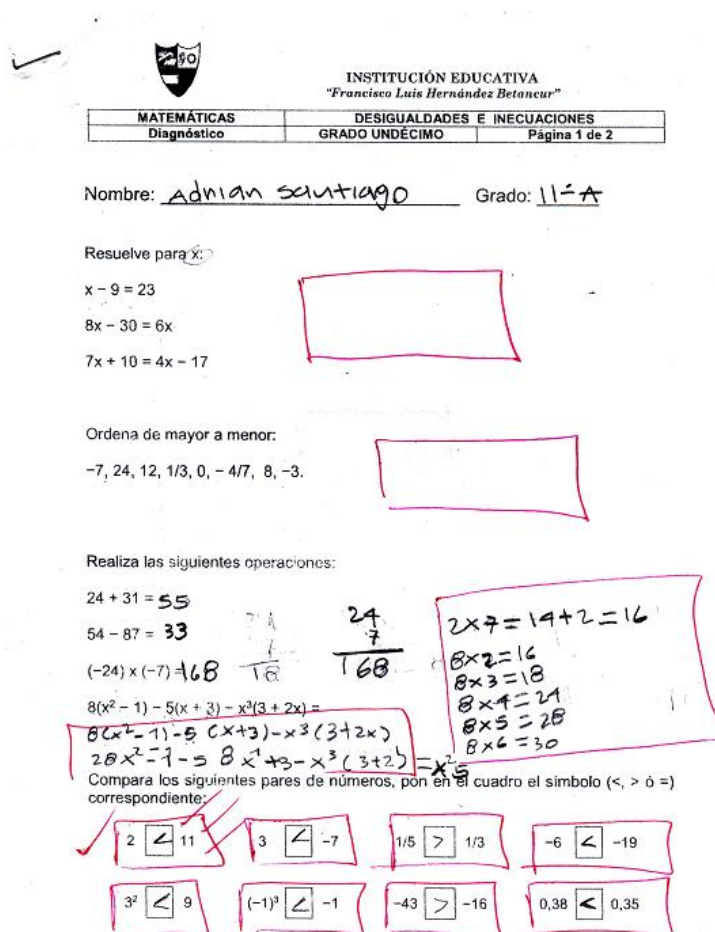 90
INSTITUCIÓN EDUCATIVA
"Francisco Luis Hernández Betancur"
MATEMÁTICAS DESIGUALDADES E INECUACIONES
Diagnóstico GRADO UNDÉCIMO Página 1 de 2
Nombre: Adrian santiago Grado: 11-A
Resuelve para x:
x – 9 = 23
8x – 30 = 6x
7x + 10 = 4x – 17
Ordena de mayor a menor:
–7, 24, 12, 1/3, 0, – 4/7, 8, –3.
Realiza las siguientes operaciones:
24 + 31 = 55
54 – 87 = 33
(–24) x (–7) = 168
24
7
168
18
2x7=14+2=16
8x2=16
8x3=18
8x4=24
8x5=28
8x6=30
8(x² – 1) – 5(x + 3) – x³(3 + 2x) =
8(x²-1)-5 (x+3)-x³(3+2x)
28x²-1-5 8x¹+3-x³(3+2)=x²5
Compara los siguientes pares de números, pon en el cuadro el símbolo (<, > ó =)
correspondiente:
2 < 11 3 < –7 1/5 > 1/3 –6 < –19
3² < 9 (–1)³ < –1 –43 > –16 0,38 < 0,35